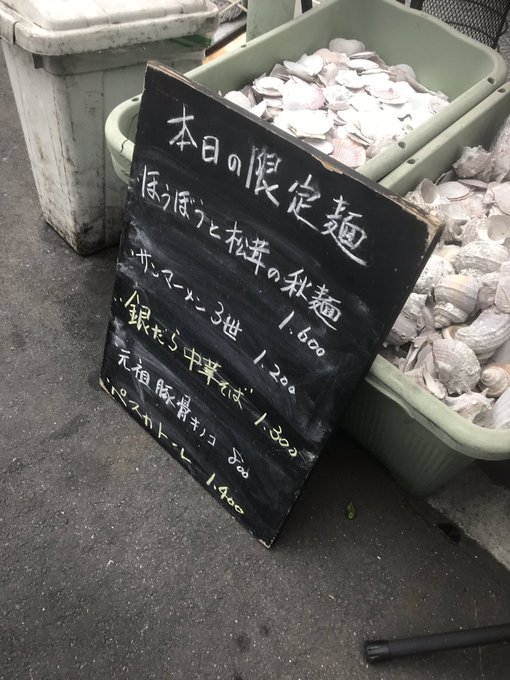 本日の限定麺
ほうぼうと松茸の秋麺
1.600
サンマーメン3世
1.200
銀だら中華そば 1.300
元祖豚骨キノコ 800
ペスカトーレ 1.400